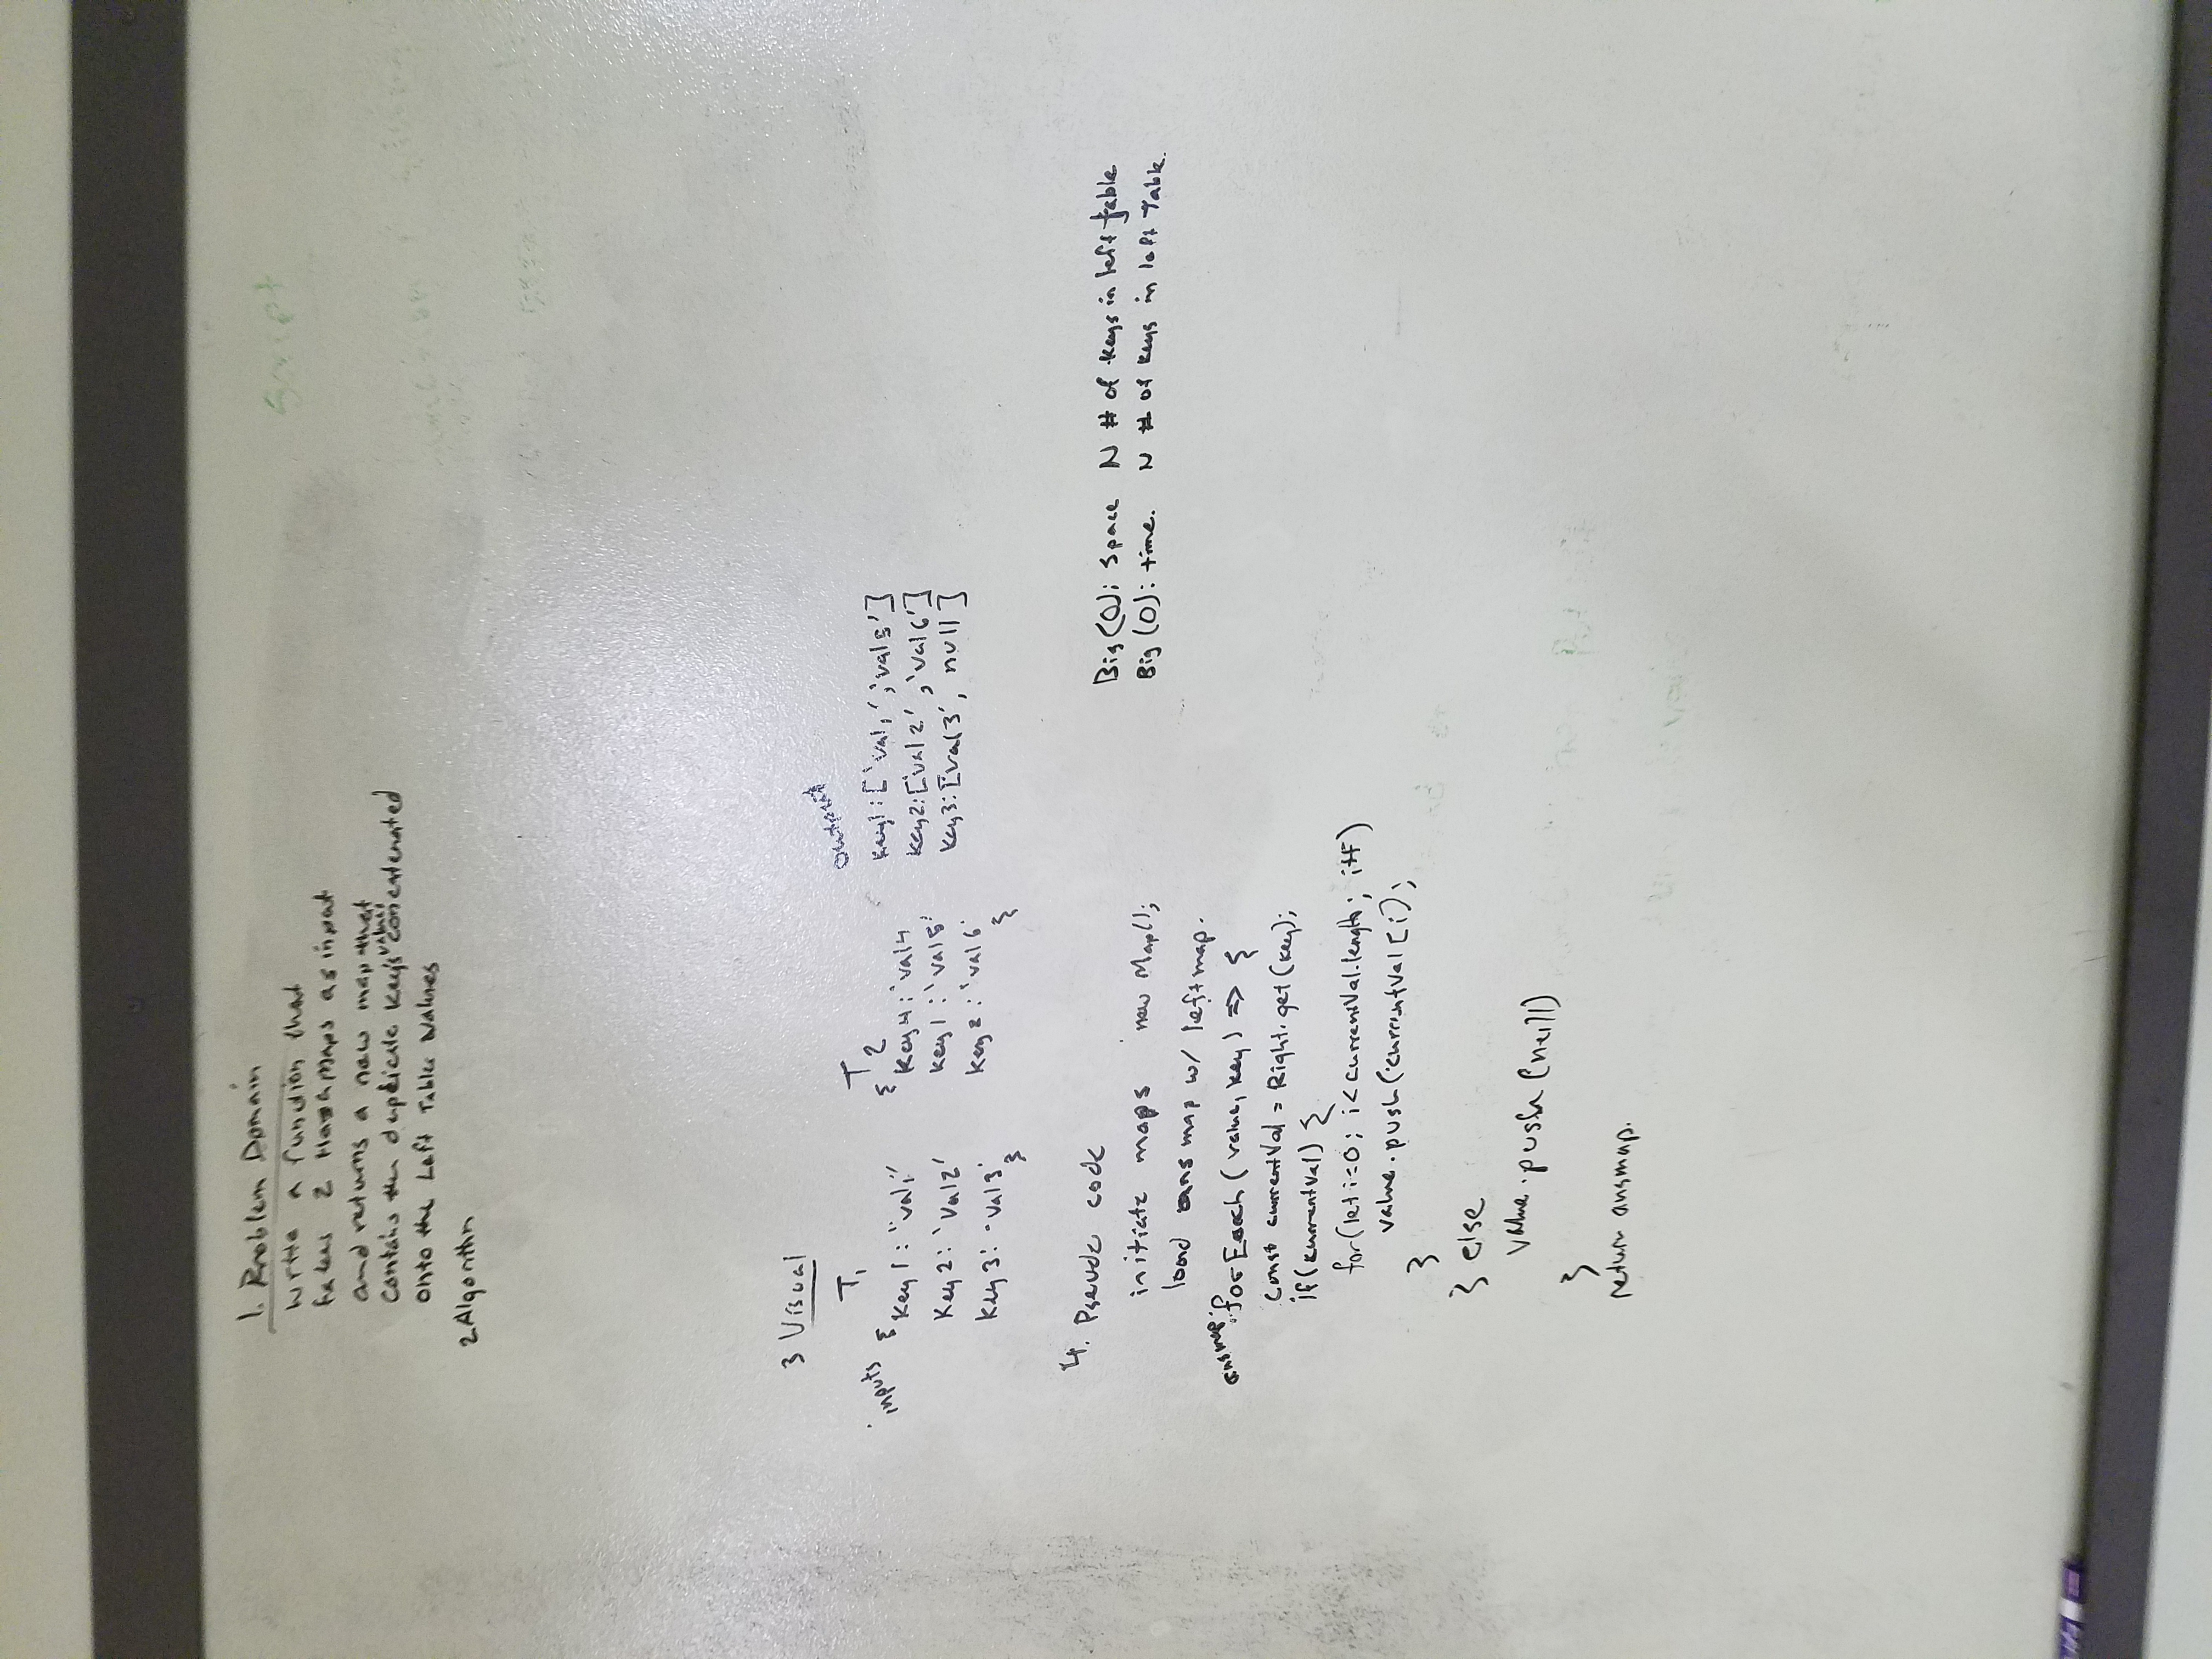 1. Problem Domain
Write a function that
takes 2 HashMaps as input
and returns a new map that
contains the duplicate key's values concatenated
onto the Left Tables Values
2 Algorithm
3 Visual
inputs
T1
T2
output
{ Key1: "val1"
{ Key4: 'val4
Key1: ['val1', 'val5']
Key2: 'Val2'
key1: 'val5'
Key2: ['val2', 'val6']
Key3: 'val3' }
Key2: 'val6' }
Key3: [val3', null]
4. Pseudo code
initiate maps new Map();
load ansmap w/ leftmap.
ansmap.forEach(value, key) => {
const currentVal = Right.get(key);
if(currentVal) {
for(let i=0; i<currentVal.length; i++)
value.push(currentVal[i);
}
} else
value.push(null)
}
return ansmap.
Big(O): Space N # of keys in left table
Big(O): time. N # of keys in left Table.